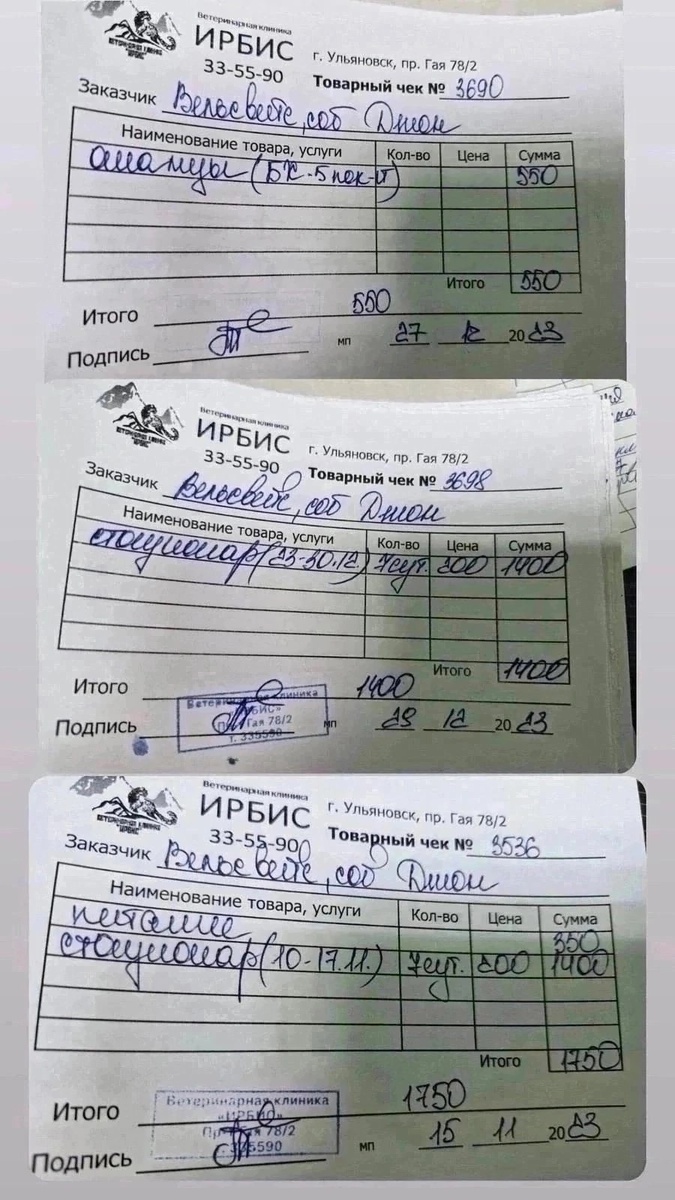 Ветеринарная клиника
ИРБИС
33-55-90
г. Ульяновск, пр. Гая 78/2
Товарный чек № 3690
ВЕТЕРИНАРНАЯ КЛИНИКА
"ИРБИС"
Заказчик Вельсвете, соб Джон
Наименование товара, услуги Кол-во Цена Сумма
анализы (БХ-5 пок-й) 550
Итого 550
Итого 550
Подпись мп 27 12 2023
Ветеринарная клиника
ИРБИС
33-55-90
г. Ульяновск, пр. Гая 78/2
Товарный чек № 3698
ВЕТЕРИНАРНАЯ КЛИНИКА
"ИРБИС"
Заказчик Вельсвете, соб Джон
Наименование товара, услуги Кол-во Цена Сумма
стационар (23-30.12.) 7сут. 200 1400
Итого 1400
Итого 1400
Ветеринарная клиника
«ИРБИС»
Пр. Гая 78/2
т. 335590
Подпись мп 29 12 2023
Ветеринарная клиника
ИРБИС
33-55-90
г. Ульяновск, пр. Гая 78/2
Товарный чек № 3536
ВЕТЕРИНАРНАЯ КЛИНИКА
"ИРБИС"
Заказчик Вельсвете, соб Джон
Наименование товара, услуги Кол-во Цена Сумма
питание 350
стационар (10-17.11.) 7сут. 200 1400
Итого 1750
Итого 1750
Ветеринарная клиника
«ИРБИС»
Пр. Гая 78/2
т. 335590
Подпись мп 15 11 2023